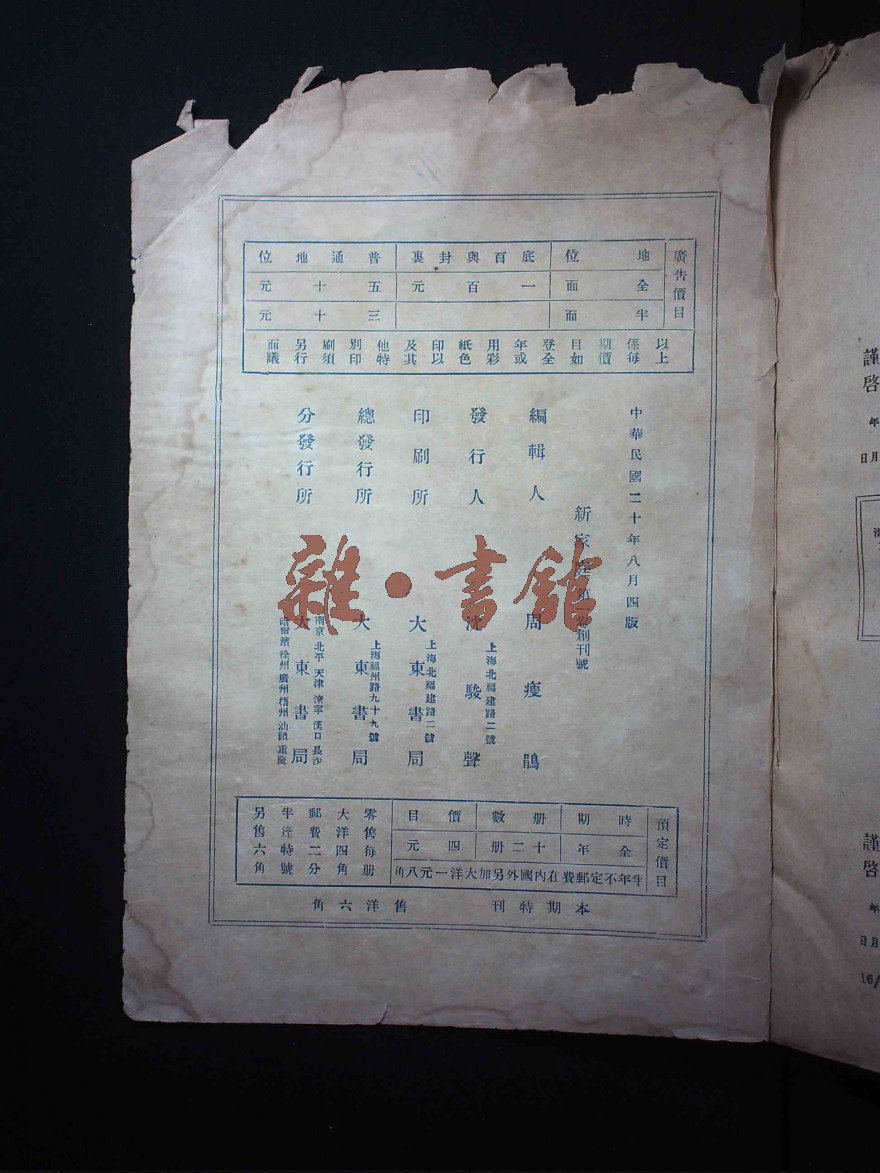 廣告價目
地位 底頁與封裏 普通地位
全面 一百元 五十元
半面 三十元
以上係每期價目如登全年或用彩色紙印以及其他特別印刷須另行面議
中華民國二十年八月四版
新家庭第 創刊號
編輯人 周瘦鵑
發行人 沈駿聲
上海北福建路二號
印刷所 大東書局
上海北福建路二號
總發行所 大東書局
上海福州路九十九號
分發行所 大東書局
南京 北平 天津 遼寧 漢口 長沙
哈爾濱 徐州 廣州 梧州 汕頭 重慶
預定價目
時期 册數 價目
全年 十二册 四元
半年不定郵費在內國外另加大洋一元八角
零售每册
大洋四角
郵費二分
半逢特號
另售六角
本期特刊 售洋六角
雜·書館
謹啓
年
月日
謹啓
年
月日
16/